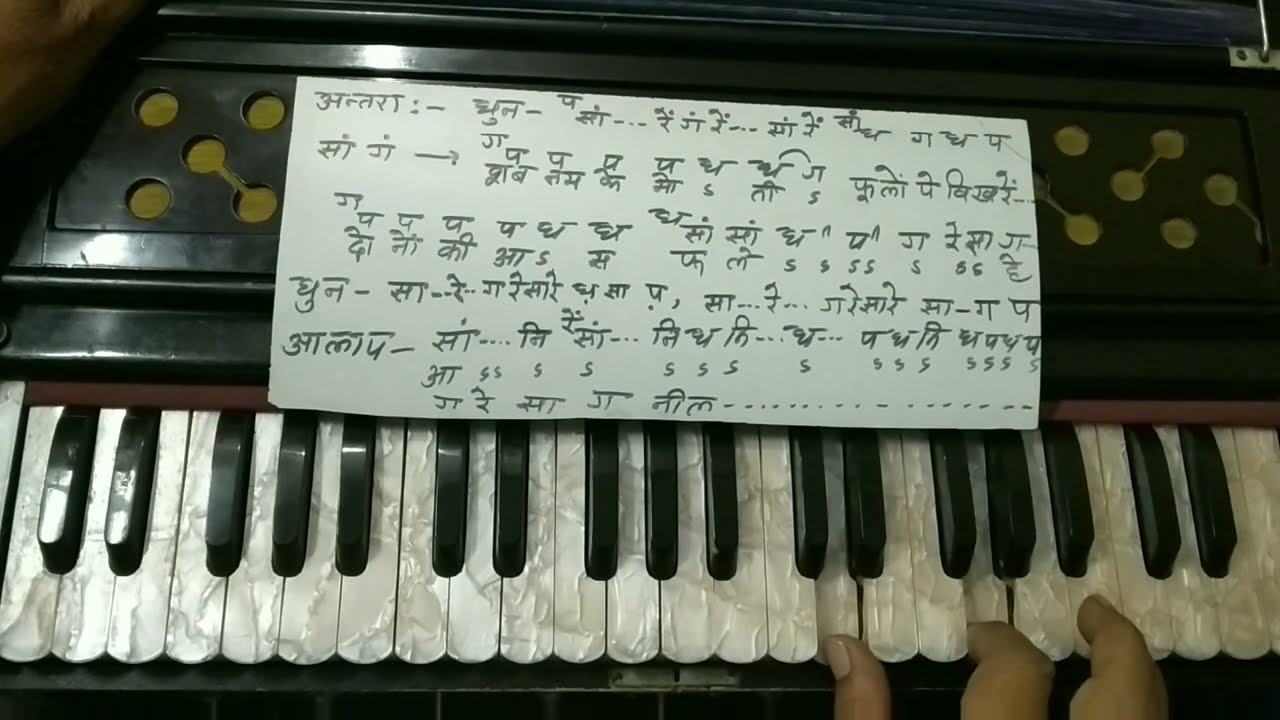 अन्तरा :- धुन- प सां-... रें गं रें-.. सां रें सां ध ग ध प
सां गं → ग प प प प ध ध ग
ख्वाब तय के ओ ऽ ती ऽ फूलों पे बिखरें...
ग प प प प ध ध ध सां सां ध नि प नि ग रे सा ग-
दो नों की आ ऽ स फ ले ऽ ऽ ऽऽ ऽ ऽऽ हे
धुन- सा-..रे-. ग रे सा रे ध़ सा प़, सा-..रे-.. ग रे सा रे सा-ग प
आलाप- सां-... नि रें सां-.. नि ध नि-.. ध-.. प ध नि ध प ध प
आ ऽऽ ऽ ऽ ऽ ऽ ऽ ऽ ऽ ऽ ऽ ऽ ऽ ऽ ऽ
ग रे सा ग नील- - - - - - - - - - - - - -